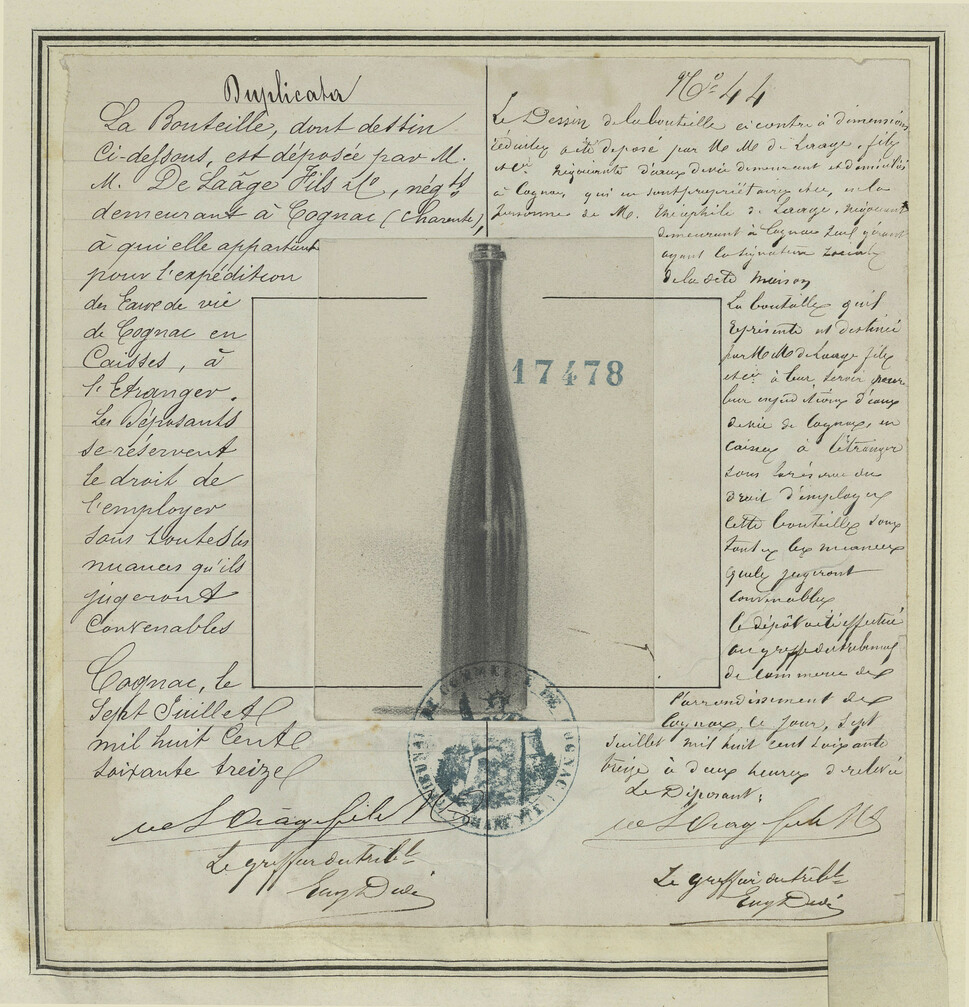 Duplicata
La Bouteille, dont dessin
Ci-dessous, est déposée par M.
M. De Laâge Fils & Co, négts
demeurant à Cognac (Charente),
à qui elle appartient
pour l'expédition
des Eaux de vie
de Cognac en
Caisses, à
l'Etranger.
Les Déposants
se réservent
le droit de
l'employer
sous toutes les
nuances qu'ils
jugeront
Convenables
Cognac, le
Sept Juillet
mil huit Cent
soixante treize
Le greffier du tribl
No 44
Le Dessin de la bouteille ci contre à dimensions
réduites a été déposé par M M de Laage fils
et Cie négociants d'eaux de vie demeurant et domiciliés
à Cognac, qui en sont propriétaires et ce, en la
personne de M. Théophile de Laage, négociant
demeurant à Cognac seul gérant
ayant la signature sociale
de la dite maison
La bouteille qu'il
représente est destinée
par M M de Laage fils
et Cie à leur servir pour
leur expéditions d'eaux
de vie de Cognac, en
caisses à l'étranger
sous la réserve du
droit d'employer
cette bouteille sous
toutes les nuances
qu'ils jugeront
convenables
le dépôt a été effectué
au greffe du tribunal
de commerce de
l'arrondissement de
Cognac le jour, sept
Juillet mil huit cent soixante
treize à deux heures de relevée
Le Déposant:
Le greffier du tribl
17478
COMMERCE DE COGNAC